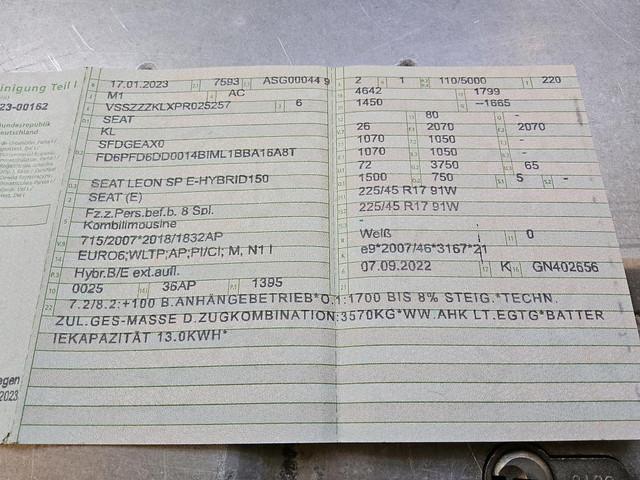 inigung Teil I
23-00162
undesrepublik
eutschland
17.01.2023 7593 ASG00044 9
M1 AC
VSSZZZKLXPR025257 6
SEAT
KL
SFDGEAX0
FD6PFD6DD0014BIML1BBA16A8T
SEAT LEON SP E-HYBRID150
SEAT (E)
Fz.z.Pers.bef.b. 8 Spl.
Kombilimousine
715/2007*2018/1832AP
EURO6;WLTP;AP;PI/CI; M, N1 I
Hybr.B/E ext.aufl.
0025 36AP 1395
2 1 110/5000 220
4642 1799
1450 --1665
80 -
26 2070 2070
1070 1050 -
1070 1050 -
72 3750 65
1500 750 5 -
225/45 R17 91W
225/45 R17 91W
-
Weiß 0
e9*2007/46*3167*21
07.09.2022 K GN402656
22 7.2/8.2:+100 B.ANHÄNGEBETRIEB*O.1:1700 BIS 8% STEIG.*TECHN.
ZUL.GES-MASSE D.ZUGKOMBINATION:3570KG*WW.AHK LT.EGTG*BATTER
IEKAPAZITÄT 13.0KWH*
egen
2023